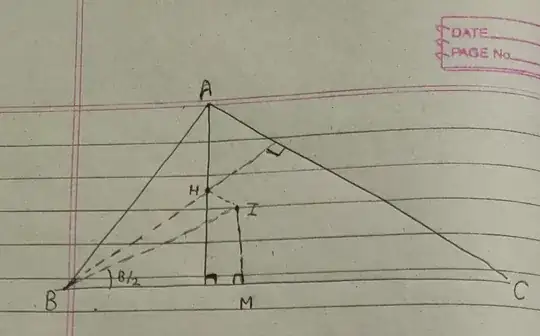 DATE
PAGE No.
A
H
I
B/2
B
M
C